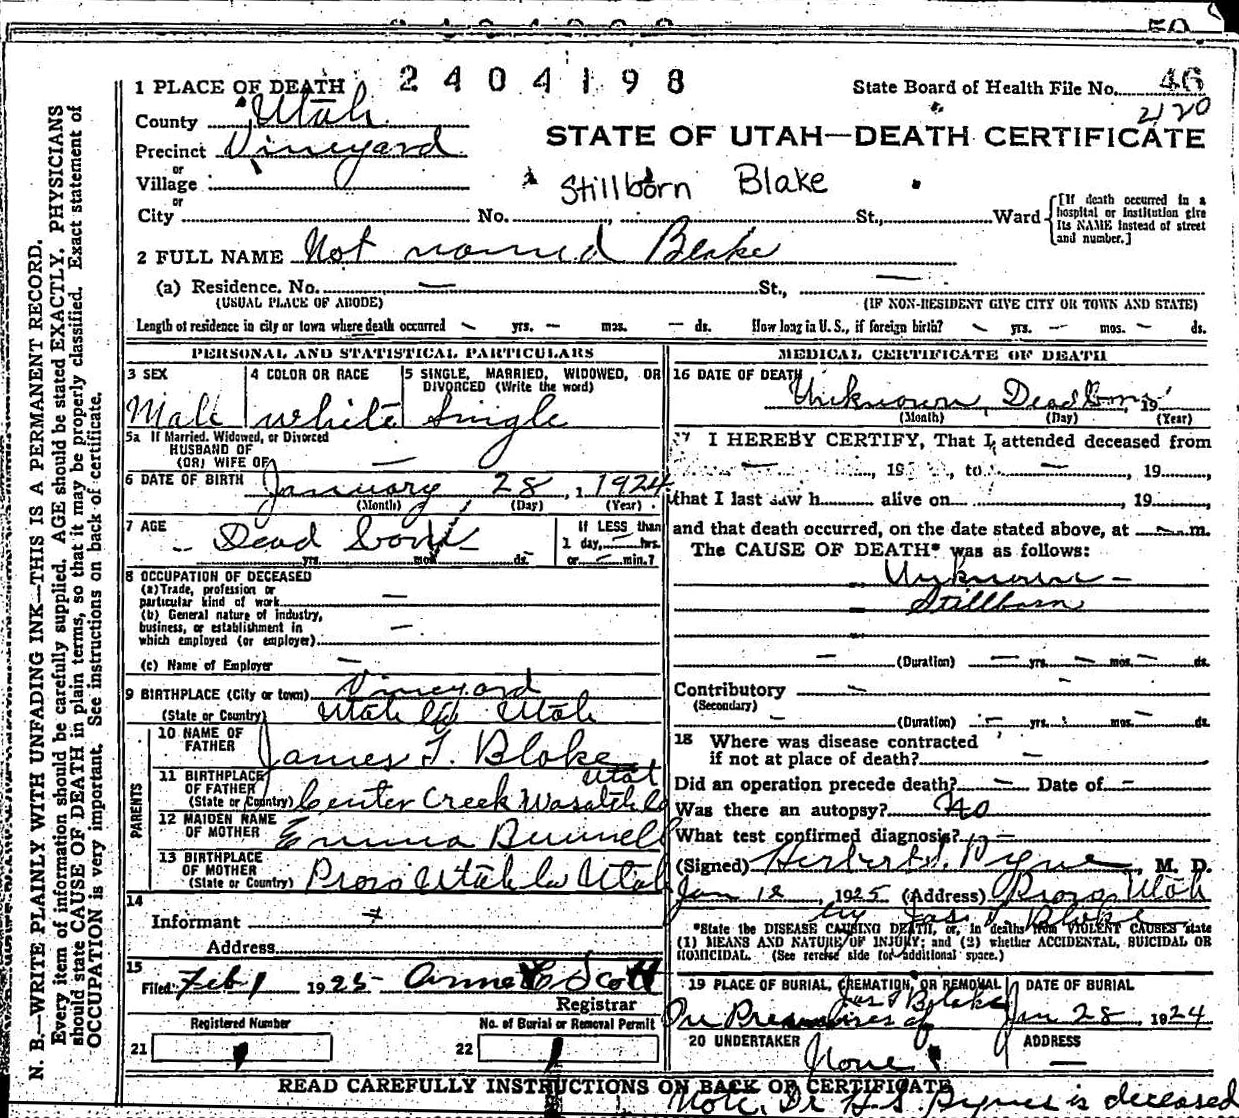 2404198
1 PLACE OF DEATH
State Board of Health File No. 46
2120
County Utah
STATE OF UTAH—DEATH CERTIFICATE
Precinct Vineyard
or
Village
Stillborn Blake
or
City No. St., Ward
[If death occurred in a hospital or institution give its NAME instead of street and number.]
2 FULL NAME Not named Blake
(a) Residence. No. — St., —
(USUAL PLACE OF ABODE) (IF NON-RESIDENT GIVE CITY OR TOWN AND STATE)
Length of residence in city or town where death occurred — yrs. — mos. — ds. How long in U. S., if foreign birth? — yrs. — mos. — ds.
PERSONAL AND STATISTICAL PARTICULARS
3 SEX
Male
4 COLOR OR RACE
white
5 SINGLE, MARRIED, WIDOWED, OR
DIVORCED (Write the word)
Single
5a If Married, Widowed, or Divorced
HUSBAND OF
(OR) WIFE OF —
6 DATE OF BIRTH January, 28, 1924
(Month) (Day) (Year)
7 AGE Dead born
yrs. mos. ds.
If LESS than
1 day, — hrs.
or — min.?
8 OCCUPATION OF DECEASED
(a) Trade, profession or
particular kind of work —
(b) General nature of industry,
business, or establishment in
which employed (or employer) —
(c) Name of Employer —
9 BIRTHPLACE (City or town) Vineyard
(State or Country) Utah Co Utah
PARENTS
10 NAME OF
FATHER James T. Blake
11 BIRTHPLACE
OF FATHER Utah
(State or Country) Center Creek Wasatch Co
12 MAIDEN NAME
OF MOTHER Emma Bunnell
13 BIRTHPLACE
OF MOTHER
(State or Country) Provo Utah Co Utah
14
Informant
Address
15
Filed Feb 1 1925 Anne C Scott
Registrar
Registered Number
21
No. of Burial or Removal Permit
22
MEDICAL CERTIFICATE OF DEATH
16 DATE OF DEATH Unknown, Dead born, 19
(Month) (Day) (Year)
17 I HEREBY CERTIFY, That I attended deceased from
—, 19 , to —, 19
that I last saw h alive on 19
and that death occurred, on the date stated above, at — m.
The CAUSE OF DEATH* was as follows:
Unknown —
Stillborn
— (Duration) — yrs. — mos. — ds.
Contributory —
(Secondary)
— (Duration) — yrs. mos. — ds.
18 Where was disease contracted
if not at place of death? —
Did an operation precede death? — Date of —
Was there an autopsy? No
What test confirmed diagnosis? —
(Signed) Herbert S. Pyne, M. D.
Jan 12, 1925 (Address) Provo, Utah
by Jas. T. Blake
*State the DISEASE CAUSING DEATH, or, in deaths from VIOLENT CAUSES state
(1) MEANS AND NATURE OF INJURY; and (2) whether ACCIDENTAL, SUICIDAL OR
HOMICIDAL. (See reverse side for additional space.)
19 PLACE OF BURIAL, CREMATION, OR REMOVAL
Jas T Blake
On Premises of
DATE OF BURIAL
Jan 28, 1924
20 UNDERTAKER
None
ADDRESS
—
READ CAREFULLY INSTRUCTIONS ON BACK OF CERTIFICATE
Note, Dr H.S. Pyne is deceased
N. B.—WRITE PLAINLY WITH UNFADING INK—THIS IS A PERMANENT RECORD.
Every item of information should be carefully supplied. AGE should be stated EXACTLY. PHYSICIANS
should state CAUSE OF DEATH in plain terms, so that it may be properly classified. Exact statement of
OCCUPATION is very important. See instructions on back of certificate.